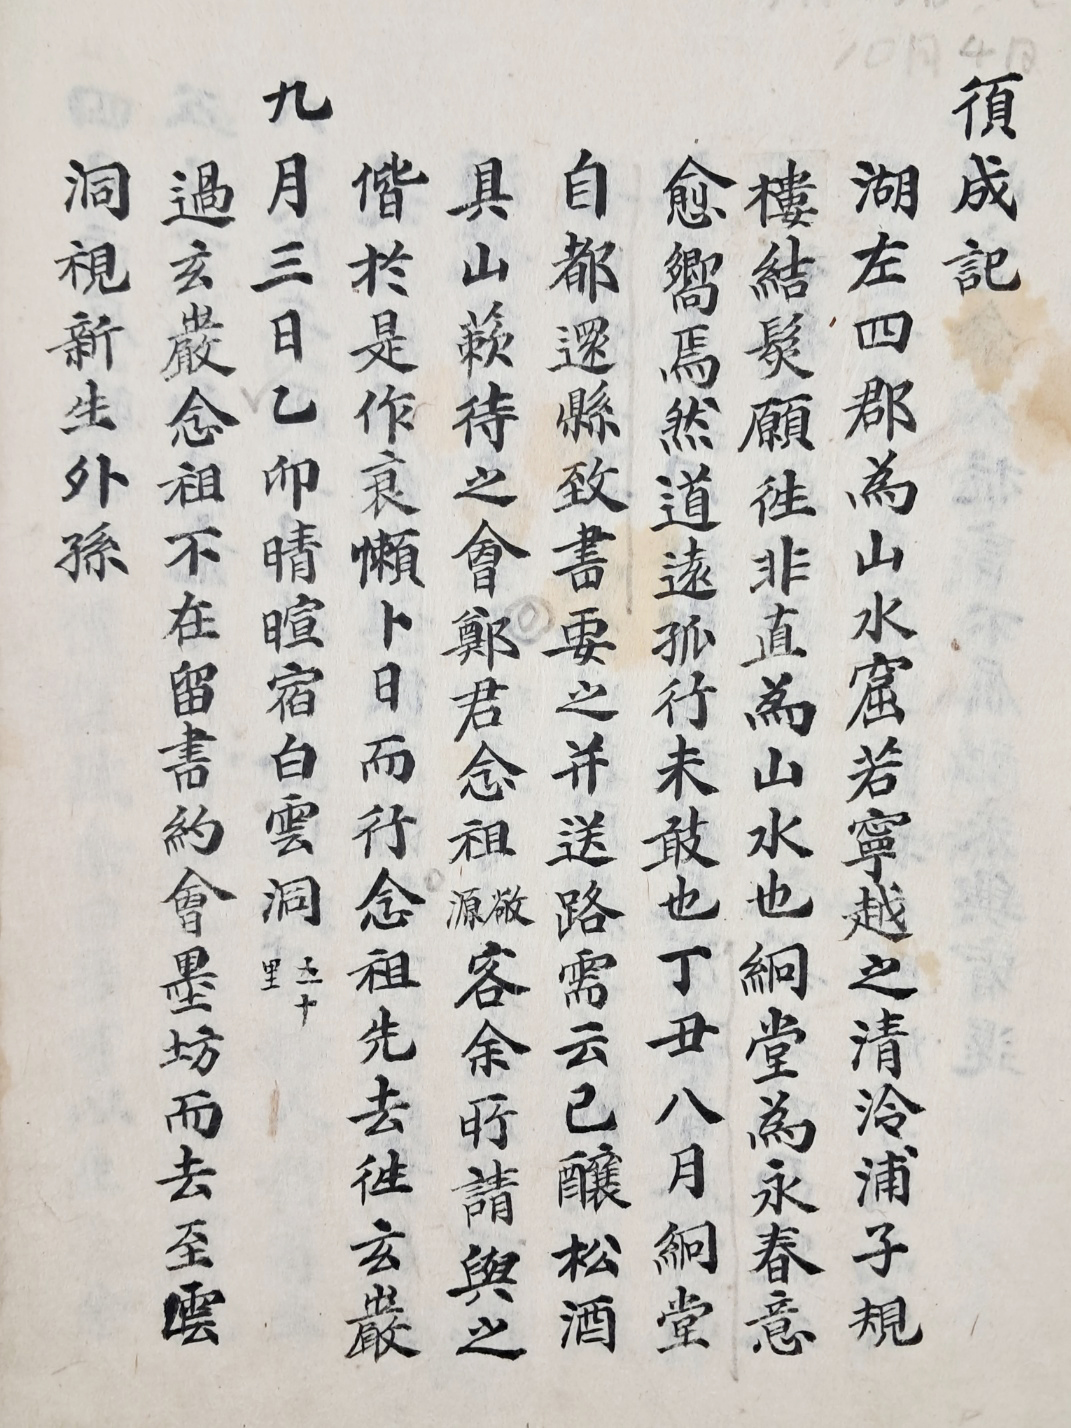 湖左四郡為山水窟若寧越之清泠浦子規
樓結髮願徃非直為山水也絅堂為永春意
愈嚮焉然道遠孤行未敢也丁丑八月絅堂
自都還縣致書要之并送路需云已釀松酒
具山蔌待之會鄭君念祖敬源客余所請與之
偕於是作哀懶卜日而行念祖先去徃玄巖
九月三日乙卯晴暄宿白雲洞五十里
過玄巖念祖不在留書約會墨坊而去至雲
洞視新生外孫